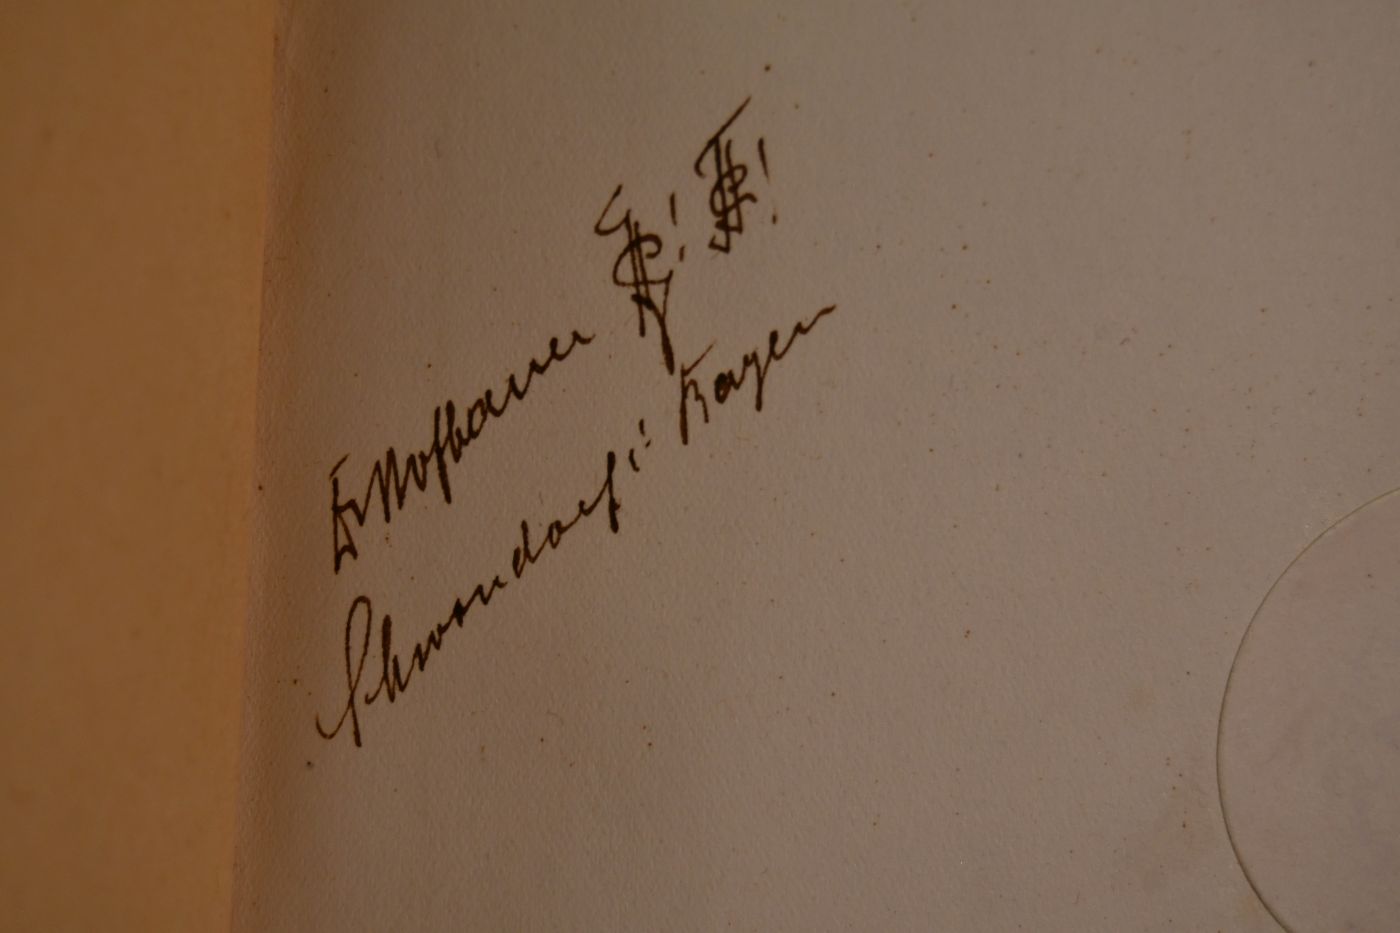 Dr Hofbauer
Schwandorf i. Bayern